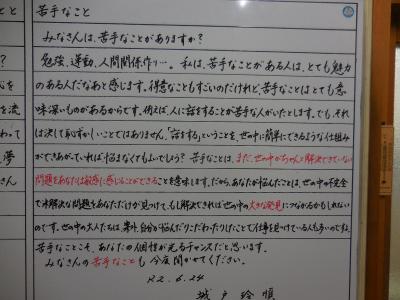 苦手なこと
みなさんは、苦手なことがありますか？
勉強、運動、人間関係作り…。私は、苦手なことがある人は、とても魅力
のある人だなあと感じます。得意なこともすごいのだけれど、苦手なことはとても意
味深いものがあるからです。例えば、人に話をすることが苦手な人がいたとします。でも、それ
は決して恥ずかしいことではありません。「話をする」ということを、世の中に簡単にできるような仕組み
ができあがっていれば悩まなくてもよいでしょう？ 苦手なことは、まだ、世の中がちゃんと解決できていない
問題をあなたは敏感に感じることができることを意味します。だから、あなたが悩んだことは、世の中の不完全
で未解決な問題をあなただけが見つけて、もし解決できれば、世の中の大きな発見につながるかもしれない
のです。世の中の大人たちは、案外、自分が悩んだりこだわったりしたことで仕事を見つけている人も多いのですよ。
苦手なことこそ、あなたの個性が光るチャンスだと思います。
みなさんの苦手なことも今度聞かせてください。
R2.6.24
城戸玲
こと
を
を流
わって
夢
さん